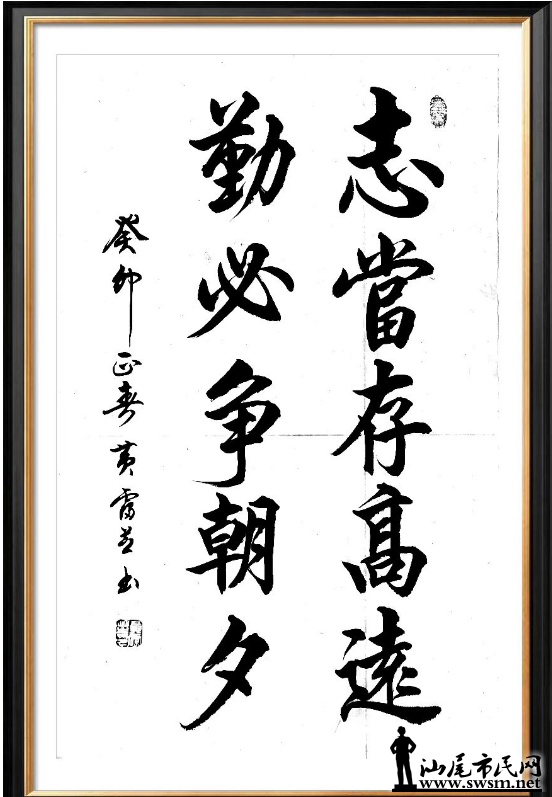 志當存高遠
勤必争朝夕
癸卯正春黄雷芝书
汕尾市民网
www.swsm.net